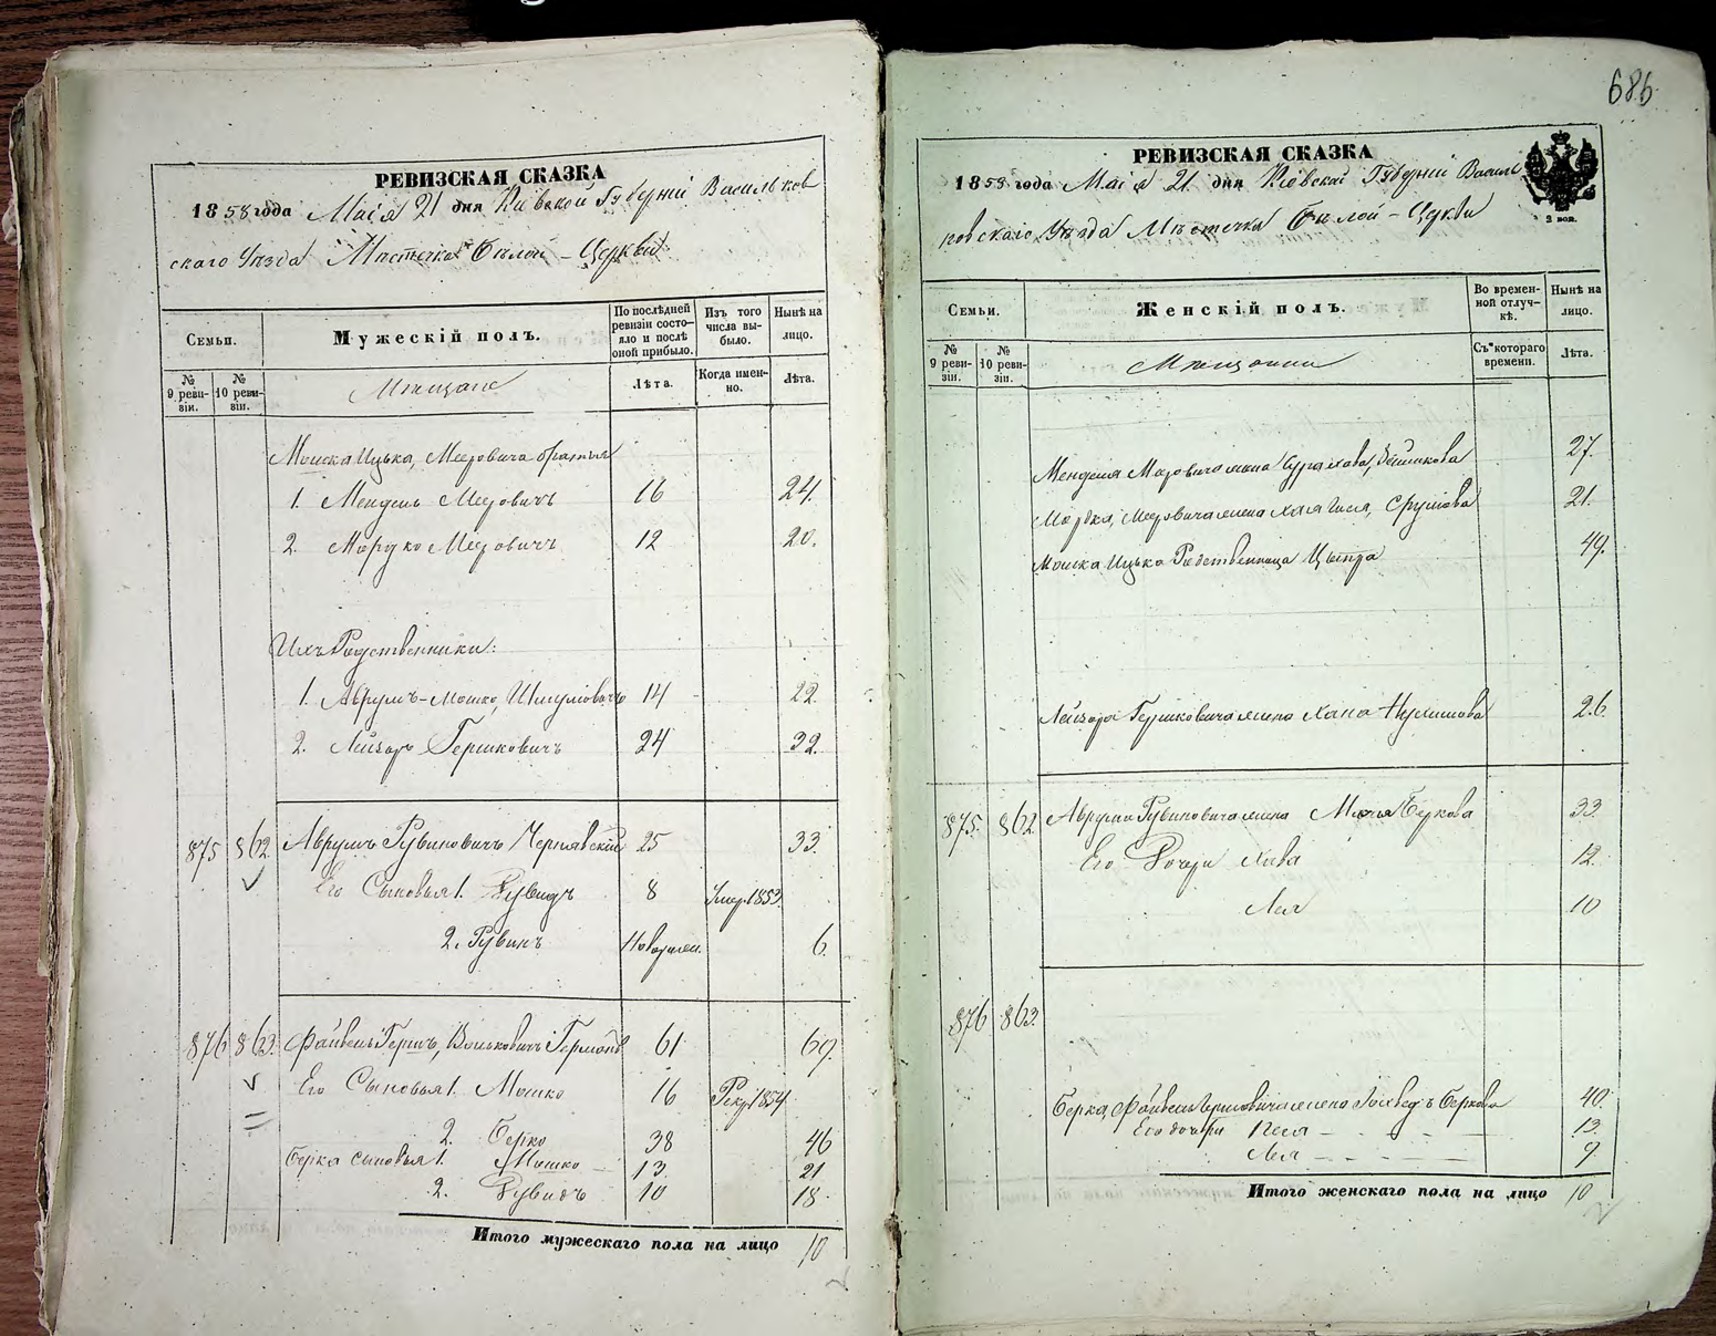 686
РЕВИЗСКАЯ СКАЗКА
1858 года Маія 21 дня Кіевской Губерніи Васильков
скаго Уѣзда Мѣстечка Бѣлой-Церкви
Семьи.
Мужескій полъ.
По послѣдней ревизіи состояло и послѣ оной прибыло.
Изъ того числа выбыло.
Нынѣ на лицо.
№ 9 ревизіи.
№ 10 ревизіи.
Мѣщане
Лѣта.
Когда именно.
Лѣта.
Мошка Ицька, Мееровича братья
1. Мендель Мееровичъ 16 24.
2. Мордко Мееровичъ 12 20.
Ихъ Родственники:
1. Аврумъ-Мошко, Шмулёвичъ 14 22.
2. Лейзоръ Гершковичъ 24 32.
875 862 Аврумъ Рувиновичъ Чернявскій 25 33.
Его Сыновья 1. 8 Умер. 1853.
2. Рувинъ Новорожден. 6.
876 863. Файвель Гершъ, Вольковичъ 61 69.
Его Сыновья 1. Мошко 16 Рекр. 1854.
2. Берко 38 46
Берка сыновья 1. Мошко 13. 21
2. 10 18.
Итого мужескаго пола на лицо 10
РЕВИЗСКАЯ СКАЗКА
1858 года Маія 21 дня Кіевской Губерніи Василь
ковскаго Уѣзда Мѣстечка Бѣлой-Церкви
2 коп.
Семьи.
Женскій полъ.
Во временной отлучкѣ.
Нынѣ на лицо.
№ 9 ревизіи.
№ 10 ревизіи.
Мѣщанки
Съ котораго времени.
Лѣта.
Менделя Мееровича жена 27.
Мордка, Мееровича жена Хая 21.
Мошка Ицька Родственница 49.
Лейзора Гершковича жена Хана 26.
875. 862. Аврума Рувиновича жена Беркова 33.
Его Дочери Хава 12.
Лея 10
876 863.
Берка, жена Беркова 40.
Его дочери Песя 13.
Лея 9.
Итого женскаго пола на лицо 10